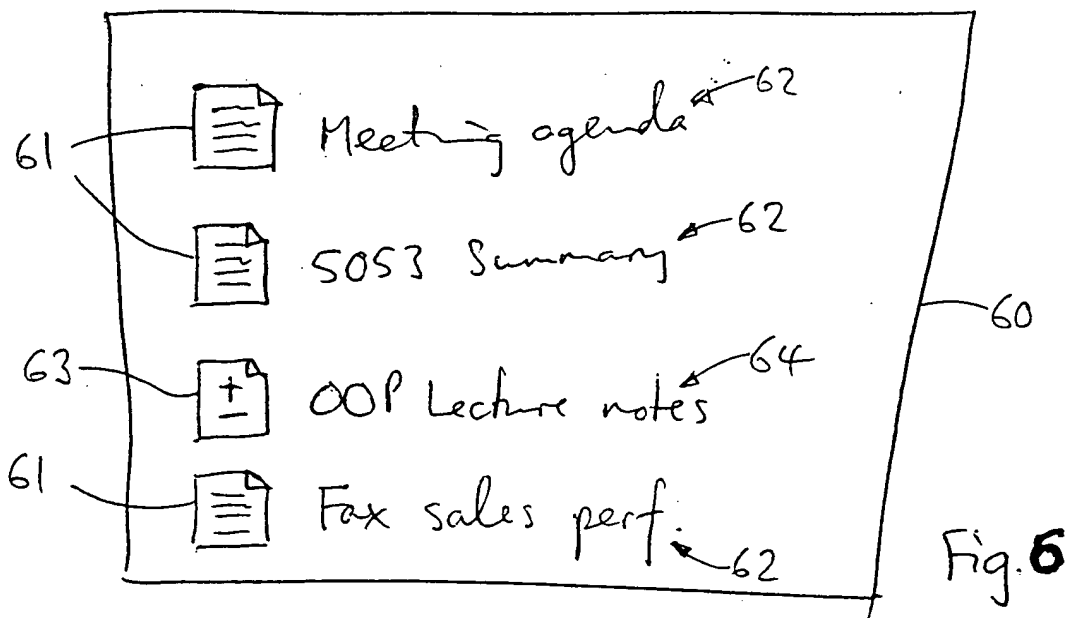 62
Meeting agenda
61
62
5053 Summary
60
63
64
+
−
OOP Lecture notes
61
Fax sales perf.
62
Fig. 6